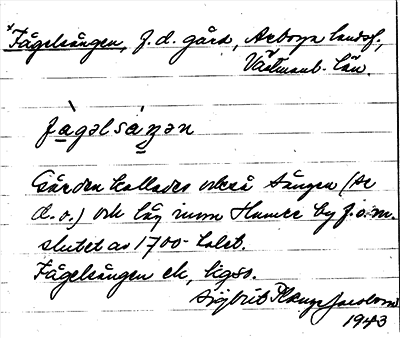 *Fågelsången, f.d. gård, Arboga landsf.,
Västmanl. län.
fàgəlsáŋən
Gården kallades också Sången (Ar
d.o.) och låg inom Humle by f.o.m.
slutet av 1700-talet.
Fågelsången ek, ligso.
Sigbrit Plænge Jacobson
1943